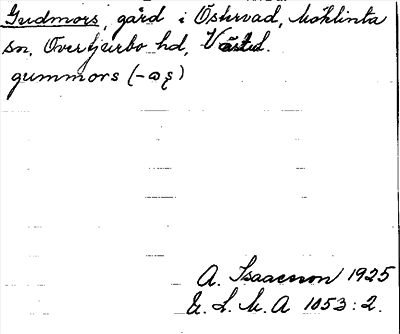 Gudmors, gård i Östervad, Möklinta
sn, Övertjurbo hd, Västd.
gummors (-ωʂ)
A. Isaacsson 1925
U. L. M. A 1053:2.